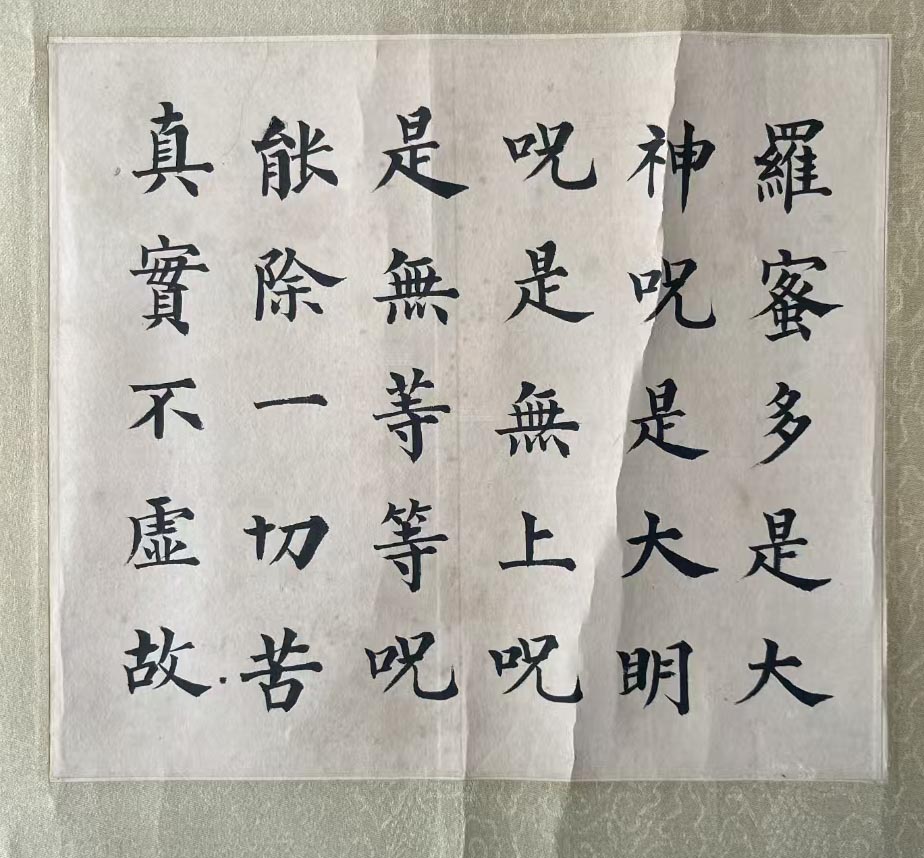 羅蜜多是大
神呪是大明
呪是無上呪
是無等等呪
能除一切苦
真實不虛故